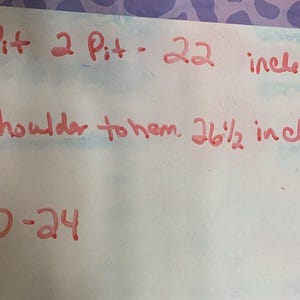 it 2 Pit - 22 inche
houlder to hem 26 1/2 inc
-24